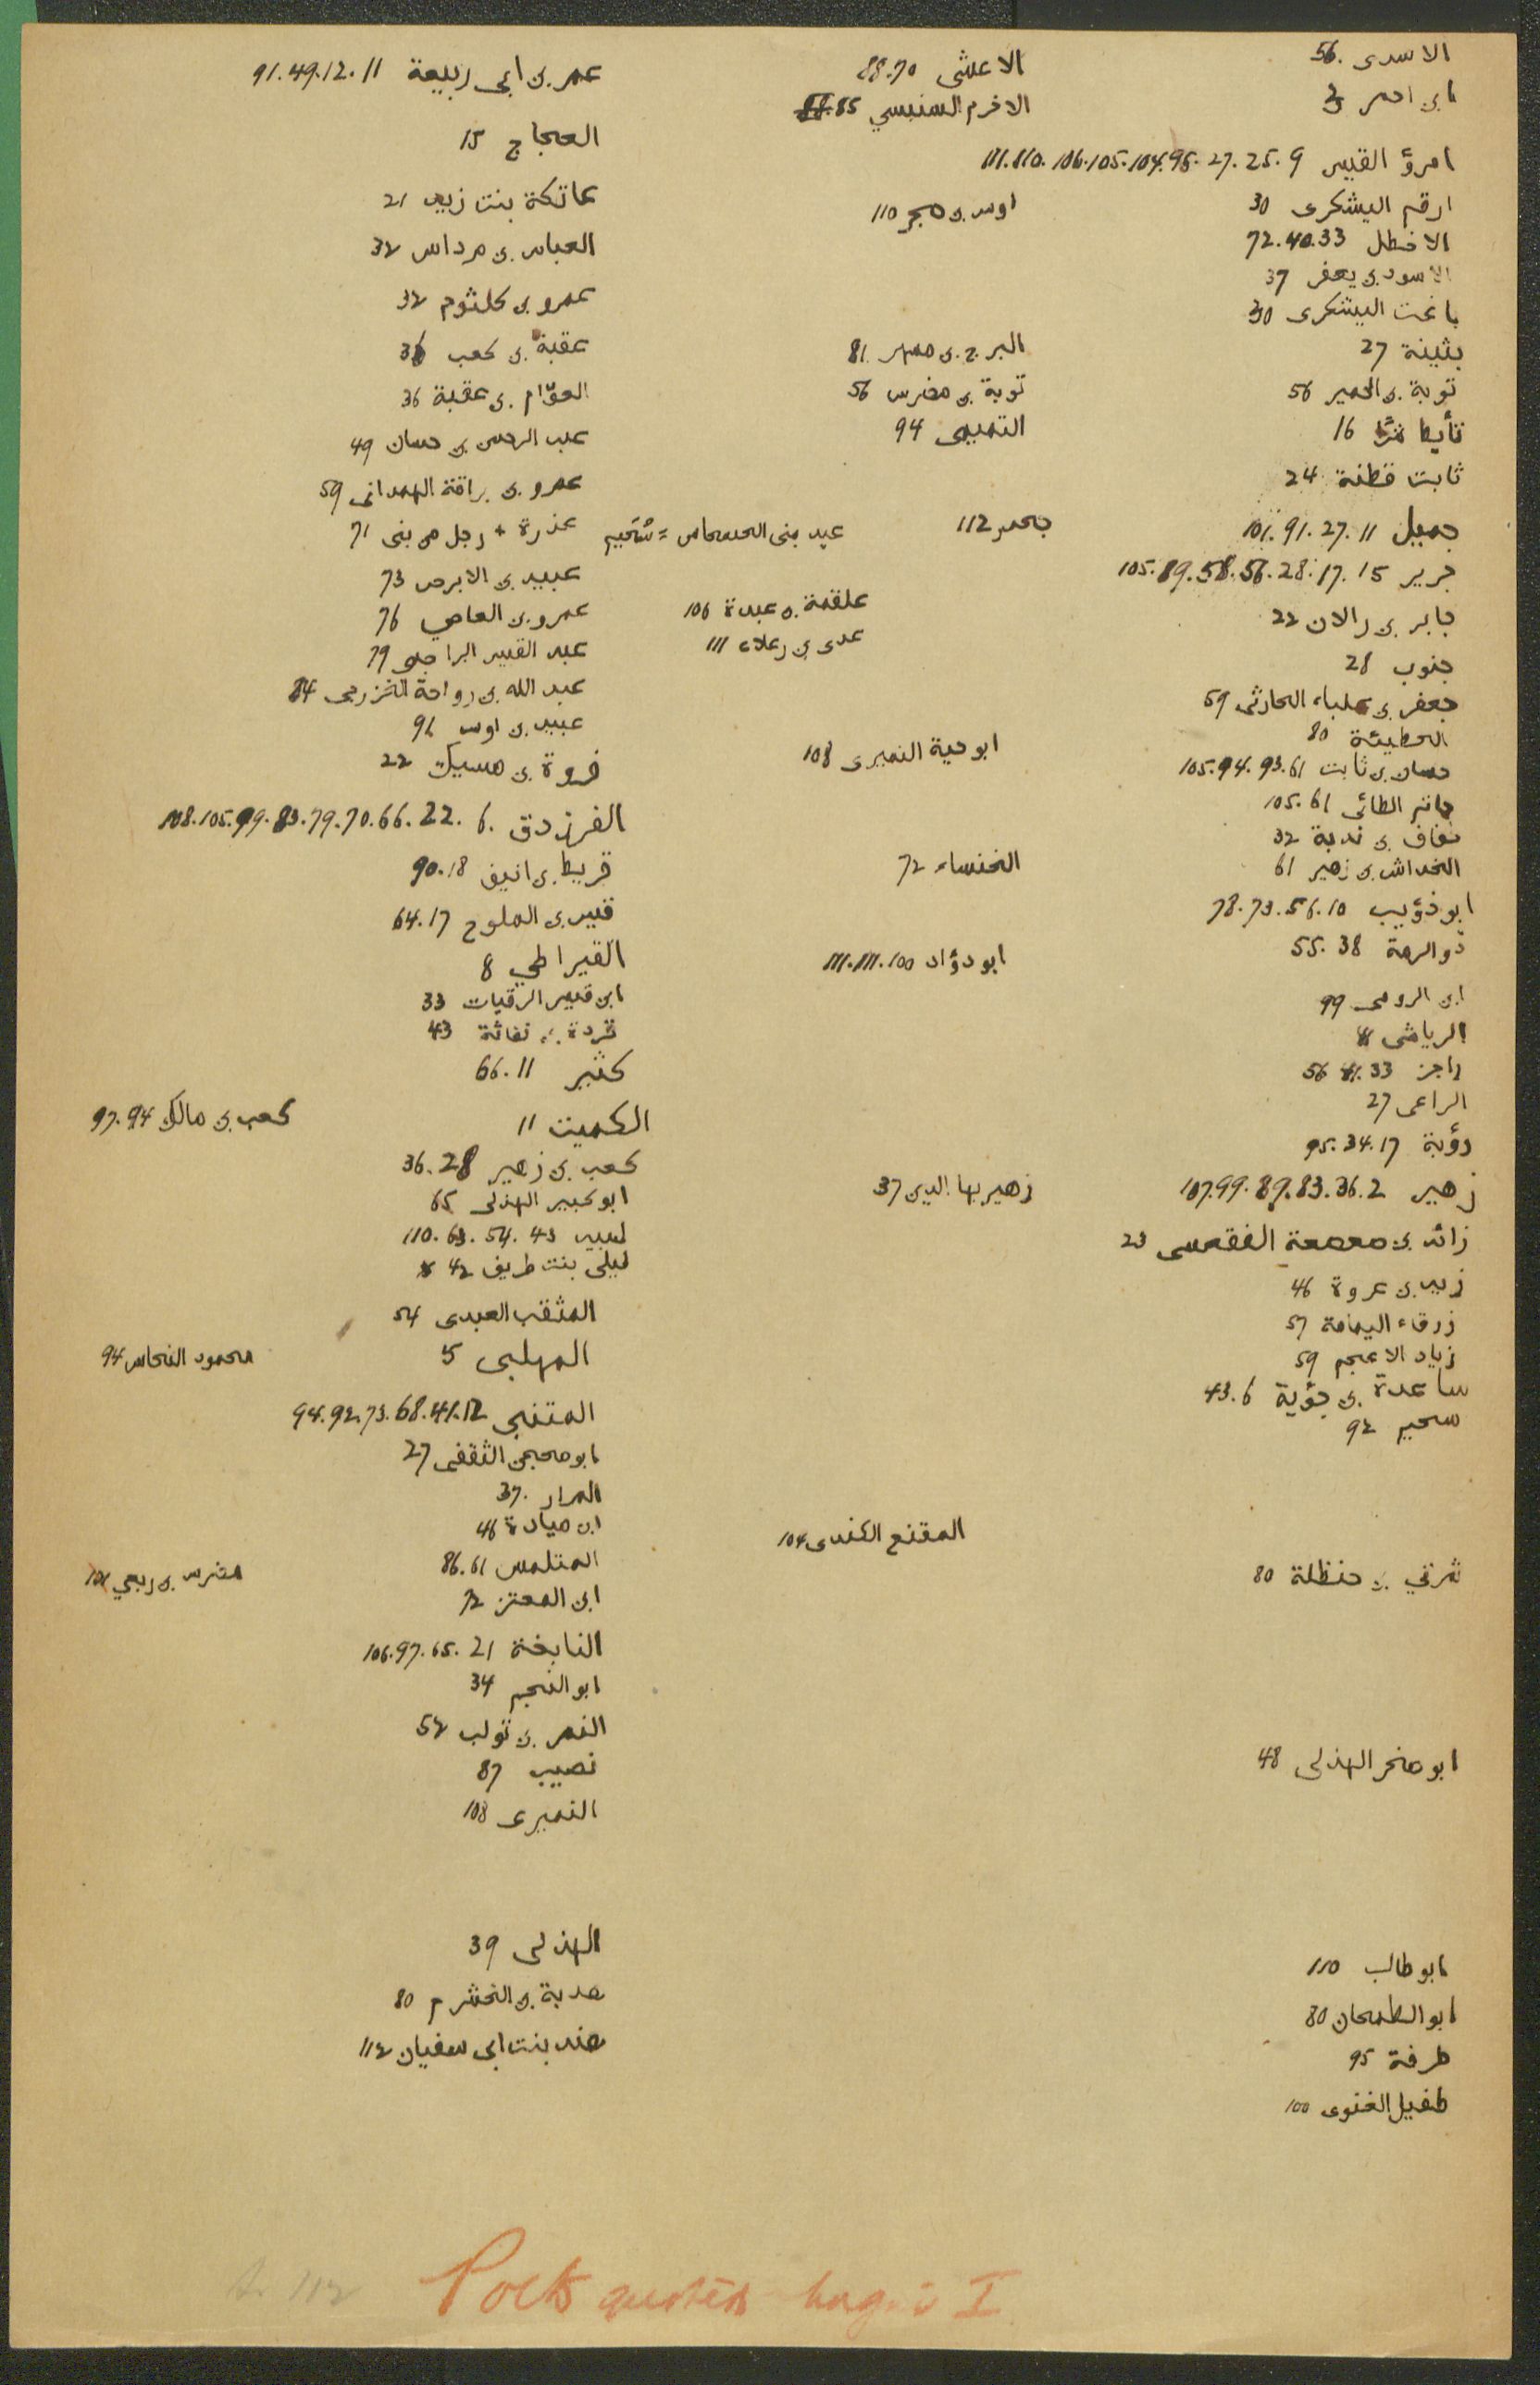 الاسدى 56.
ابن احمر
امرؤ القيس 9 .25 .27 .95 .104 .105 .106 .110 .111
ارقم اليشكرى 30
الاخطل 33 .40 .72
الاسود بن يعفر 37
باغت اليشكرى 30
بثينة 27
توبة بن الحمير 56
تأبط شرًا 16
ثابت قطنة 24
جميل 11 .27 .91 .101
جرير 15 .17 .28 .56 .58 .89 .105
جابر بن رالان 22
جنوب 28
جعفر بن علباء الحارثى 59
الحطيئة 80
حسان بن ثابت 61 .93 .94 .105
حاتم الطائى 61 .105
خفاف بن ندبة 32
الخداش بن زهير 61
ابو ذؤيب 10 .56 .73 .78
ذو الرمة 38 .55
ابن الرومى 99
الرياشى
راجز 33 .41 56
الراعى 27
رؤبة 17 .34 .95
زهير 2 .36 .83 .89 .99 .107
زائد بن صعصعة الفقعسى 23
زيد بن عروة 46
زرقاء اليمامة 57
زياد الاعجم 59
ساعدة بن جؤية 6 .43
سحيم 92
شرقي بن حنظلة 80
ابو صخر الهذلى 48
ابو طالب 110
ابو الطمحان 80
طرفة 95
طفيل الغنوى 100
الاعشى 70 .88
الاخرم السنبسي 85
اوس بن حجر 110
البرج بن مسهر 81
توبة بن مضرس 56
التميمى 94
جحدر 112
ابو حية النميرى 108
الخنساء 72
ابو دؤاد 100 .111 .111
زهير بها الدين 37
عبد بنى الحسحاس = سُحَيم
علقمة بن عبدة 106
عدى بن رعلاء 111
المقنع الكندى 104
عمر بن ابى ربيعة 11 .12 .49 .91
العجاج 15
عاتكة بنت زيد 21
العباس بن مرداس 32
عمرو بن كلثوم 32
عقبة بن كعب 36
العوّام بن عقبة 36
عبد الرحمن بن حسان 49
عمرو بن براقة الهمدانى 59
عذرة + رجل من بنى 71
عبيد بن الابرص 73
عمرو بن العاصي 76
عبد القيس البراجمى 79
عبد الله بن رواحة الخزرجى 84
عبيد بن اوس 92
فروة بن مسيك 22
الفرزدق 6 .22 .66 .70 .79 .83 .99 .105 .108
قريط بن انيف 18 .90
قيس بن الملوح 17 .64
القيراطي 8
ابن قيس الرقيات 33
قردة بن نفاثة 43
كثير 11 .66
الكميت 11
كعب بن مالك 94 .97
كعب بن زهير 28 .36
ابو كبير الهذلى 65
لبيد 43 .54 .63 .110
ليلى بنت طريف 42
المثقب العبدى 54
المهلبى 5
محمود النحاس 94
المتنبى 12 .41 .68 .73 .92 .94
ابو محجن الثقفى 27
المرار 37
ابن ميادة 46
المتلمس 61 .86
مضرس بن ربعي
ابن المعتز 72
النابغة 21 .65 .97 .106
ابو النجم 34
النمر بن تولب 52
نصيب 87
النميرى 108
الهذلى 39
هدبة بن الخشرم 80
هند بنت ابى سفيان 112
Poets quoted I